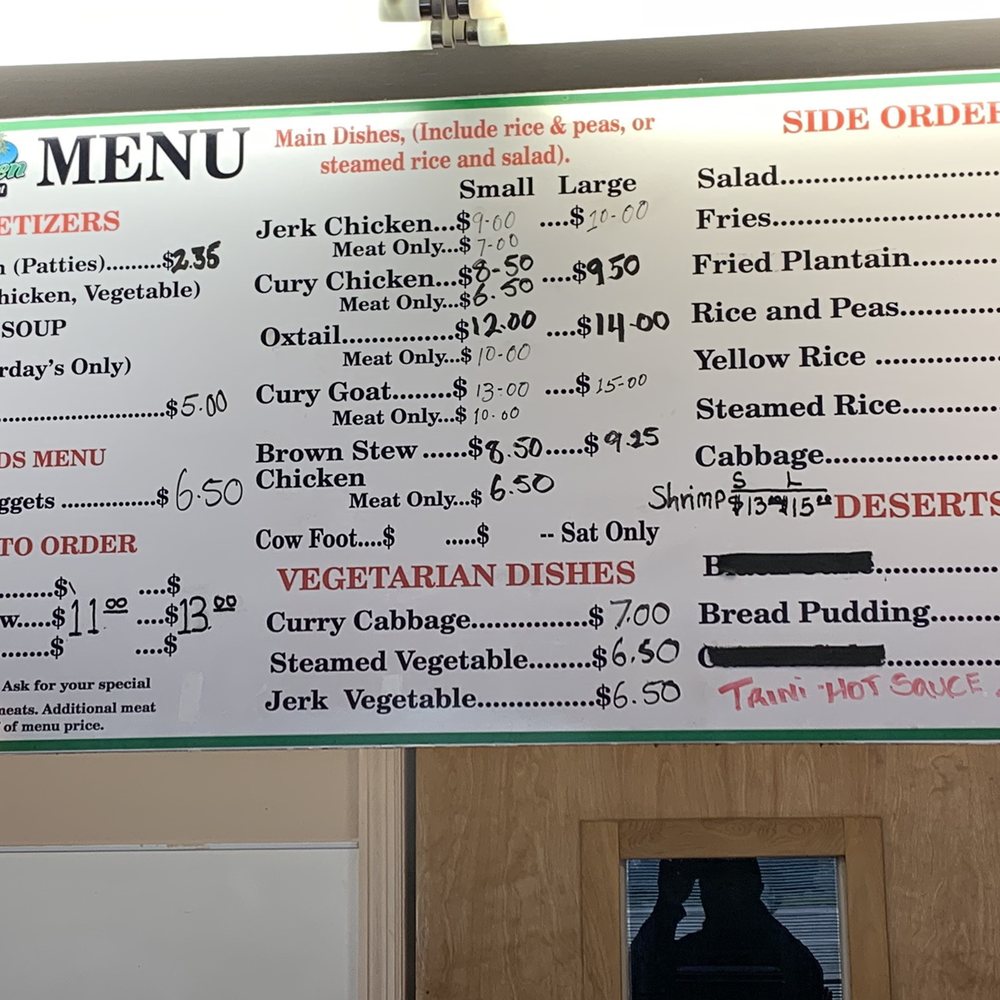 en
MENU
ETIZERS
n (Patties).........$2.35
hicken, Vegetable)
SOUP
rday's Only)
.........................$5.00
DS MENU
ggets ...............$ 6.50
TO ORDER
.........$ ....$
w.....$11 00 ....$13 00
........$ ....$
Ask for your special
meats. Additional meat
of menu price.
Main Dishes, (Include rice & peas, or
steamed rice and salad).
Small Large
Jerk Chicken...$9-00 ....$10-00
Meat Only...$7-00
Cury Chicken...$8-50 ....$9 50
Meat Only...$6.50
Oxtail................$12.00 ....$14-00
Meat Only...$10-00
Cury Goat........$ 13-00 ....$15-00
Meat Only...$ 10.00
Brown Stew ......$8.50.....$9.25
Chicken
Meat Only...$ 6.50
Cow Foot....$ .....$ -- Sat Only
VEGETARIAN DISHES
Curry Cabbage................$ 7.00
Steamed Vegetable........$6.50
Jerk Vegetable................$6.50
SIDE ORDER
Salad
Fries
Fried Plantain
Rice and Peas
Yellow Rice
Steamed Rice
Cabbage
S L
Shrimp $13 00 $15 00
DESERTS
B
Bread Pudding
TRINI-HOT SAUCE